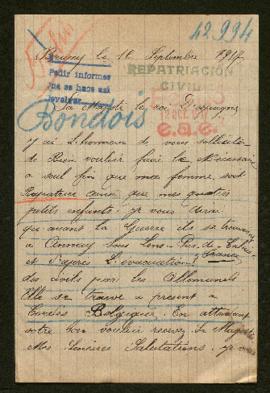 42.994
Brugny le 10 Septembre 1917
Pedir informes
que se hace así
REPATRIACIÓN
CIVIL
Sa Majesté le roi D'espagne
12 DIC. 1917
e.a.e.
Bondois
j'ai L'honneur de vous solliciter
de Bien vouloir faire le nécessaire
a seul fin que ma femme soit
Rapatrier ainsi que mes quatres
petits enfants. je vous dirai
que avant la Guerre ils se trouvaient
a Annay sous Lens. Pas de Calais
France
et d'après L'évacuation
des civils par les Allemands
Elle se trouve a présent a
Belgique. En attendant
votre Bon vouloir recevez Sa Majesté
Mes Sincères Salutations. je vous